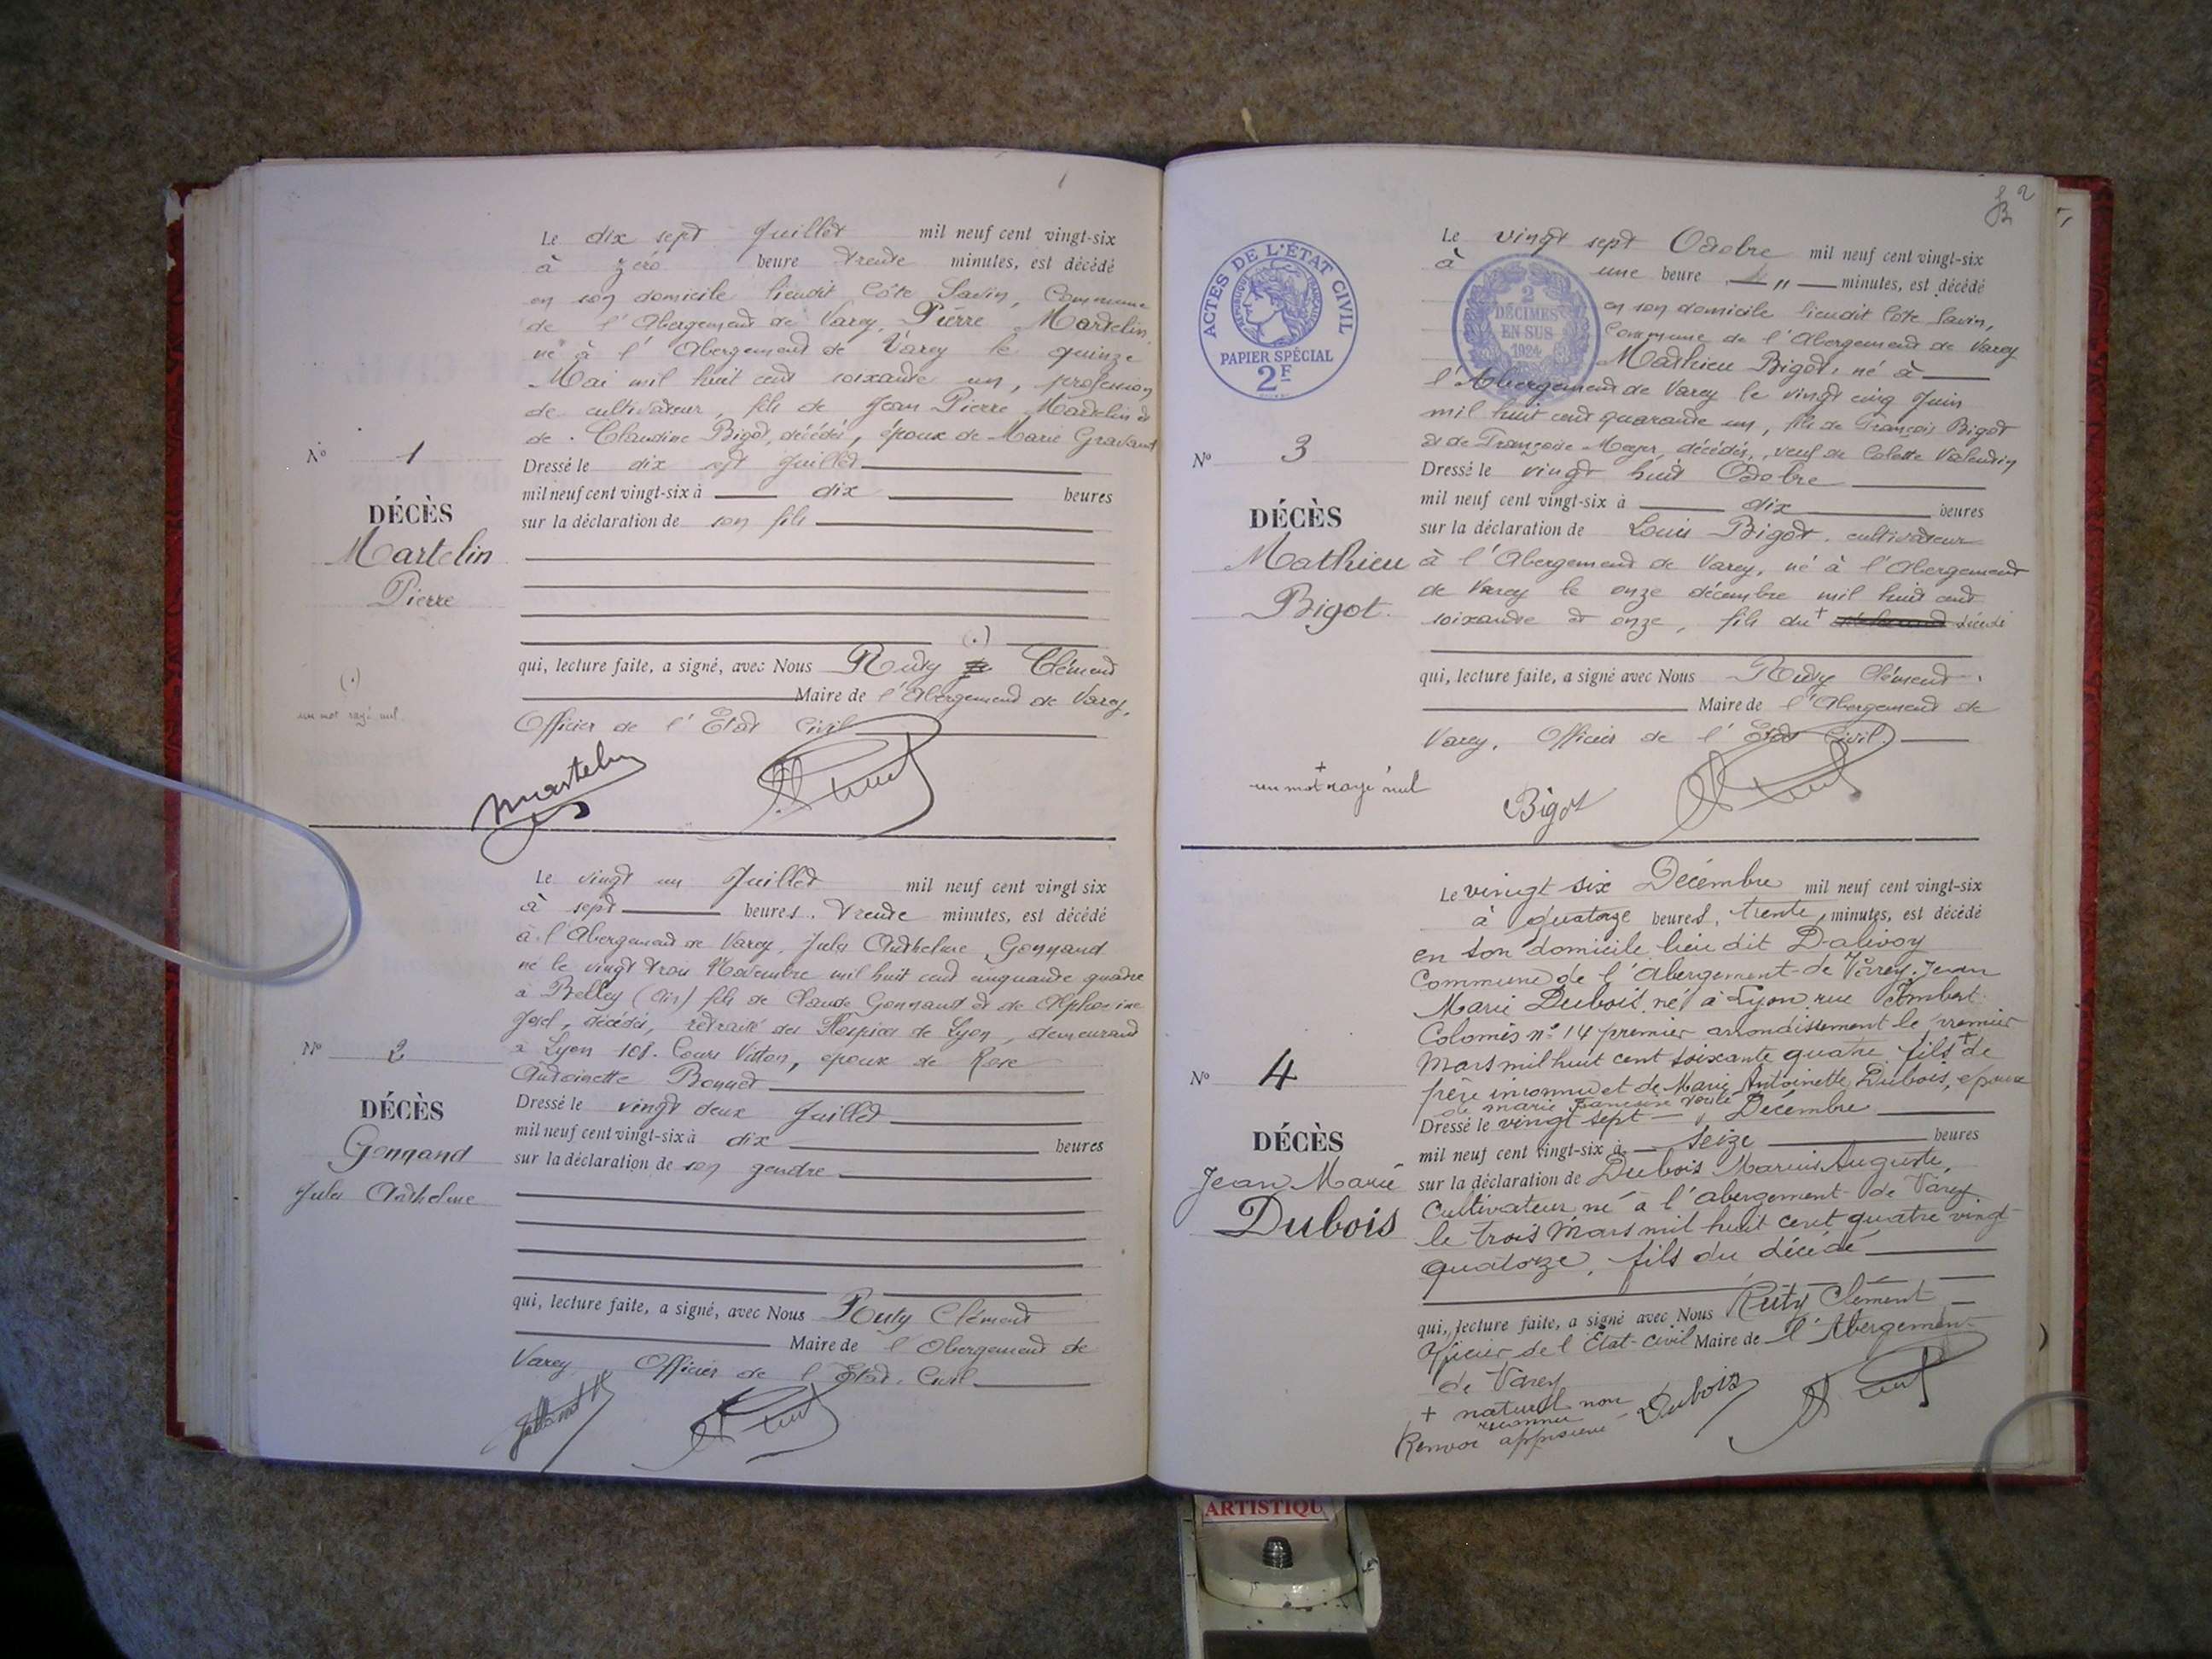 1
Le dix sept Juillet mil neuf cent vingt-six
à zéro heure trente minutes, est décédé
en son domicile lieudit Côte Savin, Commune
de l'Abergement de Varey, Pierre Martelin,
né à l'Abergement de Varey le quinze
Mai mil huit cent soixante un, profession
de cultivateur, fils de Jean Pierre Martelin et
de Claudine Bigot, décédés, époux de Marie Gravant
Nº 1
DÉCÈS
Martelin
Pierre
Dressé le dix sept Juillet
mil neuf cent vingt-six à dix heures
sur la déclaration de son fils
(.)
qui, lecture faite, a signé, avec Nous Ruty Clément
Maire de l'Abergement de Varey,
Officier de l'Etat Civil
(.)
un mot rayé nul.
Martelin
Le vingt un Juillet mil neuf cent vingt six
à sept heures, trente minutes, est décédé
à l'Abergement de Varey, Jules Anthelme Gonnand
né le vingt trois Novembre mil huit cent cinquante quatre
à Belley (Ain) fils de Claude Gonnand et de Alphonsine
Josel, décédés, retraité des Hospices de Lyon, demeurant
à Lyon 108. Cours Vitton, époux de Rose
Antoinette Bonnet
Nº 2
DÉCÈS
Gonnand
Jules Anthelme
Dressé le vingt deux Juillet
mil neuf cent vingt-six à dix heures
sur la déclaration de son gendre
qui, lecture faite, a signé, avec Nous Ruty Clément
Maire de l'Abergement de
Varey, Officier de l'Etat. Civil
2
ACTES DE L'ÉTAT CIVIL
RÉPUBLIQUE FRANÇAISE
PAPIER SPÉCIAL
2F
2
DÉCIMES
EN SUS
1924
Le vingt sept Octobre mil neuf cent vingt-six
à une heure " minutes, est décédé
en son domicile lieudit Côte Savin,
Commune de l'Abergement de Varey
Mathieu Bigot, né à
l'Abergement de Varey le vingt cinq Juin
mil huit cent quarante un, fils de François Bigot
et de Françoise Moyer, décédés, veuf de Colette Valentin
Nº 3
DÉCÈS
Mathieu
Bigot.
Dressé le vingt huit Octobre
mil neuf cent vingt-six à dix heures
sur la déclaration de Louis Bigot, cultivateur
à l'Abergement de Varey, né à l'Abergement
de Varey le onze décembre mil huit cent
soixante et onze, fils du + décédé
qui, lecture faite, a signé avec Nous Ruty Clément,
Maire de l'Abergement de
Varey, Officier de l'Etat Civil.
+
un mot rayé nul
Bigot
Le vingt six Décembre mil neuf cent vingt-six
à quatorze heures, trente, minutes, est décédé
en son domicile lieu dit Dalivoy
Commune de l'Abergement-de Varey, Jean
Marie Dubois, né à Lyon rue Imbert
Colomès nº 14 premier arrondissement le premier
Mars mil huit cent soixante quatre, fils + de
père inconnu et de Marie Antoinette Dubois, époux
de marie
Nº 4
DÉCÈS
Jean Marie
Dubois
Dressé le vingt sept Décembre
mil neuf cent vingt-six à seize heures
sur la déclaration de Dubois Marius Auguste,
Cultivateur né à l'abergement de Varey
le trois Mars mil huit cent quatre vingt
quatorze, fils du décédé
qui, lecture faite, a signé avec Nous Ruty Clément
Officier de l'Etat-civil Maire de l'Abergement
de Varey
+ naturel non
reconnu
Renvoi approuvé
Dubois
ARTISTIQU